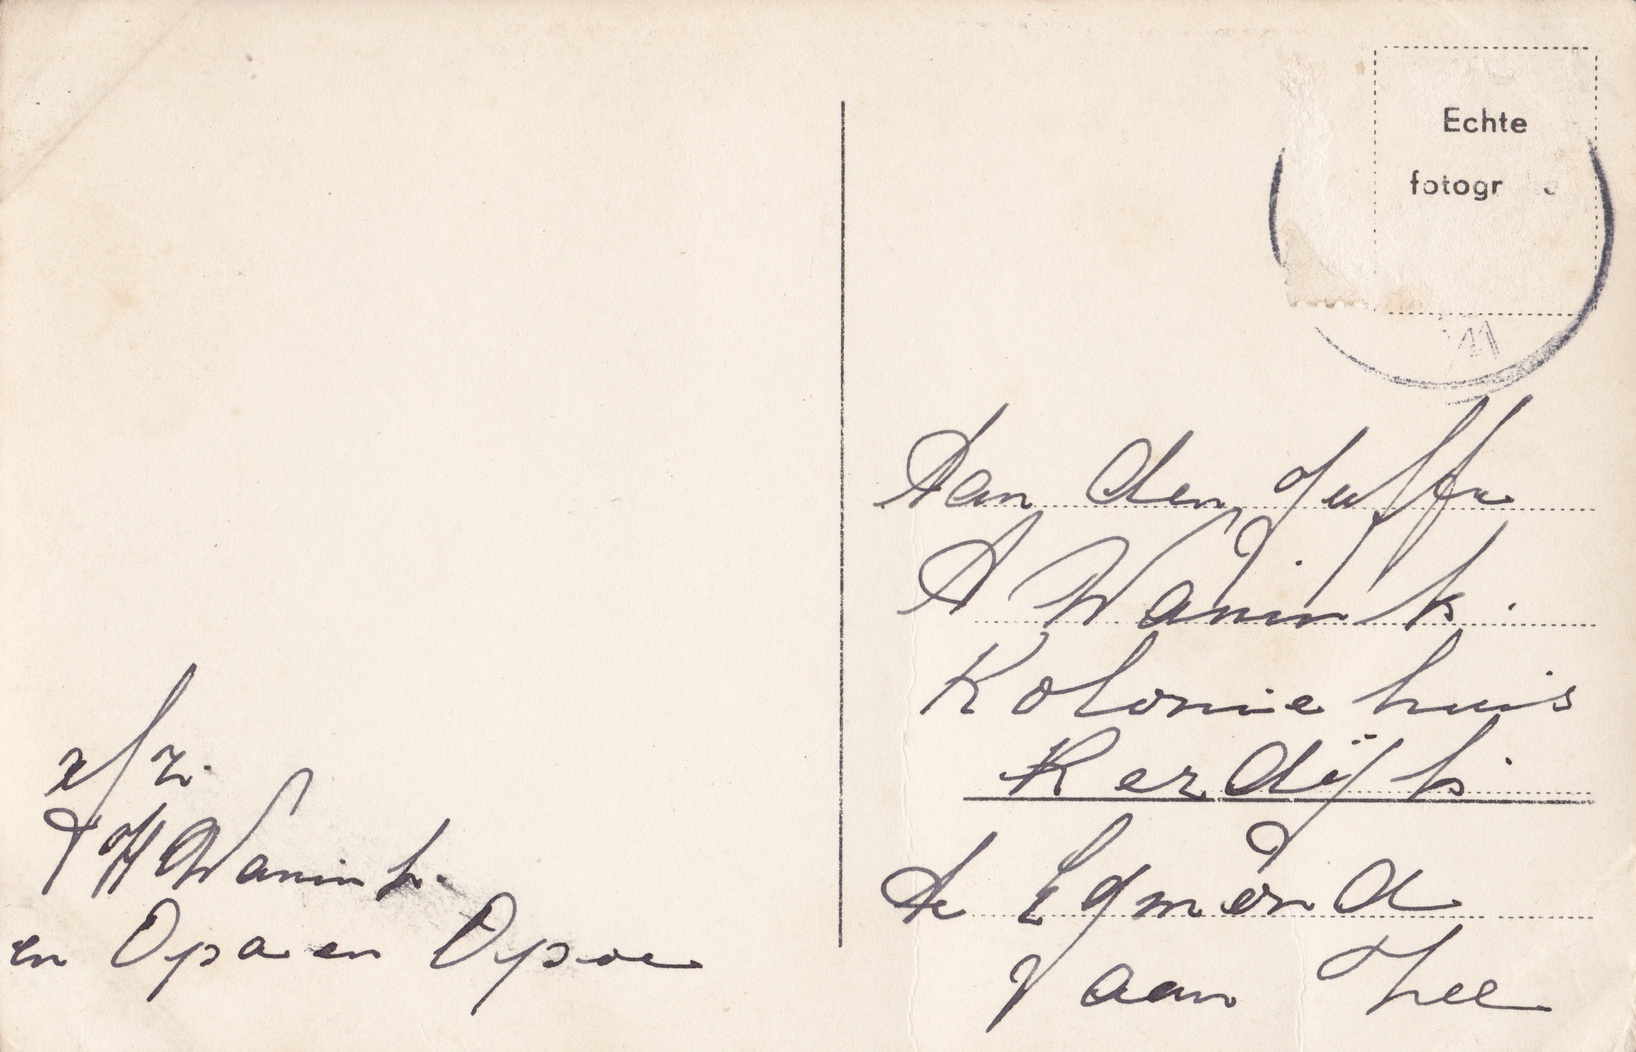 Echte
fotogr
41
Aan den Juffr
A Wanink.
Koloniehuis
Kerdijk
Te Egmond
aan Zee
afz.
H Wanink.
en Opa en Opoe